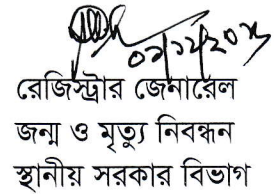 রেজিস্ট্রার জেনারেল
জন্ম ও মৃত্যু নিবন্ধন
স্থানীয় সরকার বিভাগ